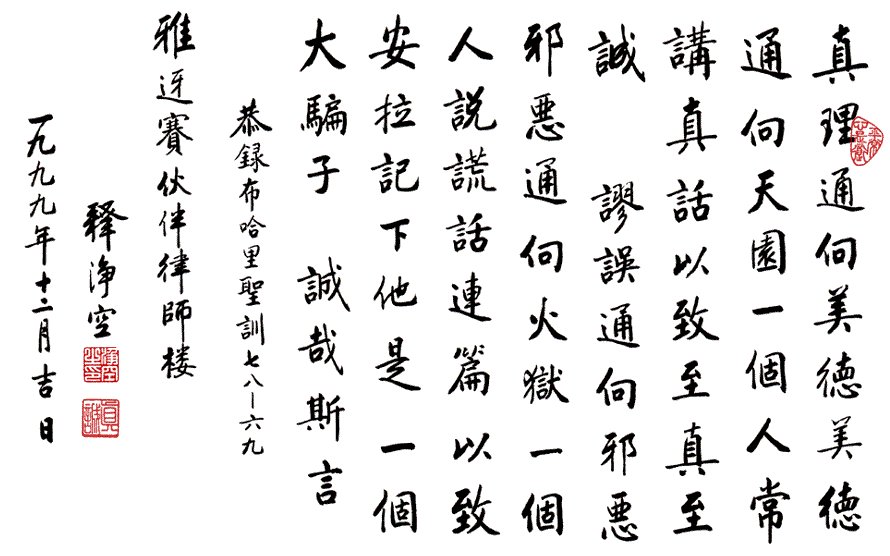 真理通向美德美德
通向天園一個人常
講真話以致至真至
誠 謬誤通向邪惡
邪惡通向火獄一個
人説謊話連篇以致
安拉記下他是一個
大騙子 誠哉斯言
恭録布哈里聖訓七八-六九
雅迓賽伙伴律師楼
釋淨空
一九九九年十二月吉日